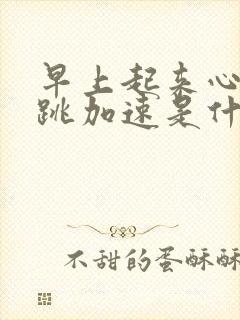 早上起来心
跳加速是什
不甜的蛋酥酥